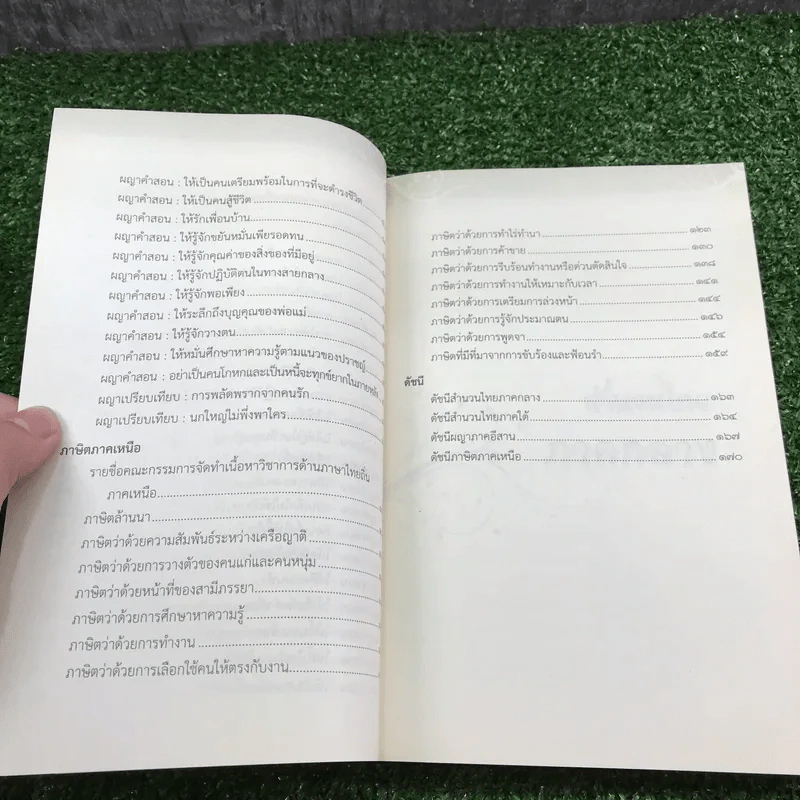 ผญาคำสอน : ให้เป็นคนเตรียมพร้อมในการที่จะดำรงชีวิต
ผญาคำสอน : ให้เป็นคนสู้ชีวิต
ผญาคำสอน : ให้รักเพื่อนบ้าน
ผญาคำสอน : ให้รู้จักขยันหมั่นเพียรอดทน
ผญาคำสอน : ให้รู้จักคุณค่าของสิ่งของที่มีอยู่
ผญาคำสอน : ให้รู้จักปฏิบัติตนในทางสายกลาง
ผญาคำสอน : ให้รู้จักพอเพียง
ผญาคำสอน : ให้ระลึกถึงบุญคุณของพ่อแม่
ผญาคำสอน : ให้รู้จักวางตน
ผญาคำสอน : ให้หมั่นศึกษาหาความรู้ตามแนวของปราชญ์
ผญาคำสอน : อย่าเป็นคนโกหกและเป็นหนี้จะทุกข์ยากในภายหลัง
ผญาเปรียบเทียบ : การพลัดพรากจากคนรัก
ผญาเปรียบเทียบ : นกใหญ่ไม่พึ่งพาใคร
ภาษิตภาคเหนือ
รายชื่อคณะกรรมการจัดทำเนื้อหาวิชาการด้านภาษาไทยถิ่น
ภาคเหนือ
ภาษิตล้านนา
ภาษิตว่าด้วยความสัมพันธ์ระหว่างเครือญาติ
ภาษิตว่าด้วยการวางตัวของคนแก่และคนหนุ่ม
ภาษิตว่าด้วยหน้าที่ของสามีภรรยา
ภาษิตว่าด้วยการศึกษาหาความรู้
ภาษิตว่าด้วยการทำงาน
ภาษิตว่าด้วยการเลือกใช้คนให้ตรงกับงาน
ภาษิตว่าด้วยการทำไร่ทำนา ๑๒๓
ภาษิตว่าด้วยการค้าขาย ๑๓๐
ภาษิตว่าด้วยการรีบร้อนทำงานหรือด่วนตัดสินใจ ๑๓๘
ภาษิตว่าด้วยการทำงานให้เหมาะกับเวลา ๑๔๑
ภาษิตว่าด้วยการเตรียมการล่วงหน้า ๑๔๔
ภาษิตว่าด้วยการรู้จักประมาณตน ๑๔๖
ภาษิตว่าด้วยการพูดจา ๑๕๔
ภาษิตที่มีที่มาจากการขับร้องและฟ้อนรำ ๑๕๙
ดัชนี
ดัชนีสำนวนไทยภาคกลาง ๑๖๓
ดัชนีสำนวนไทยภาคใต้ ๑๖๔
ดัชนีผญาภาคอีสาน ๑๖๗
ดัชนีภาษิตภาคเหนือ ๑๗๐